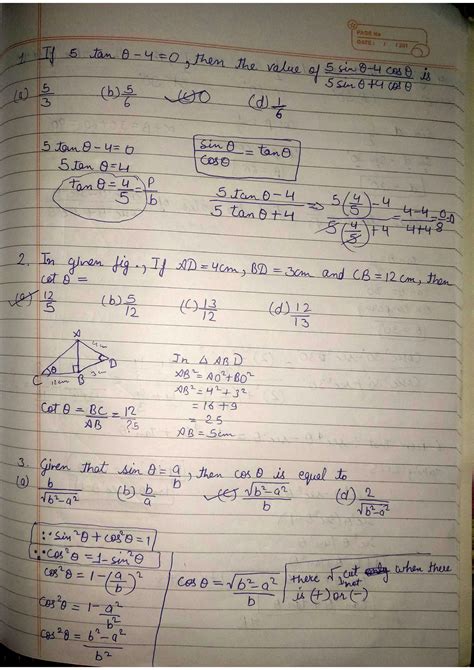 PAGE No
DATE: / /201
1. If 5 tan θ - 4 = 0, then the value of (5 sin θ - 4 cos θ)/(5 sin θ + 4 cos θ) is
(a) 5/3 (b) 5/6 (c) 0 (d) 1/6
5 tan θ - 4 = 0
sin θ/cos θ = tan θ
5 tan θ = 4
tan θ = 4/5 = P/b
(5 tan θ - 4)/(5 tan θ + 4) ⇒ (5(4/5) - 4)/(5(4/5) + 4) = (4-4)/(4+4) = 0/8 = 0
2. In given fig., If AD = 4cm, BD = 3cm and CB = 12cm, then
cot θ =
(a) 12/5 (b) 5/12 (c) 13/12 (d) 12/13
A
4cm
D
C θ B
12cm 3cm
In △ ABD
AB² = AD² + BD²
AB² = 4² + 3²
= 16 + 9
= 25
AB = 5cm
Cot θ = BC/AB = 12/5
3. Given that sin θ = a/b, then cos θ is equal to
(a) b/√b²-a² (b) b/a (c) √b²-a²/b (d) 2/√b²-a²
∵ sin²θ + cos²θ = 1
∵ cos²θ = 1 - sin²θ
cos²θ = 1 - (a/b)²
cos²θ = 1 - a²/b²
cos²θ = b²-a²/b²
cos θ = √b²-a²/b
there √, cut not when there
is (+) or (-)